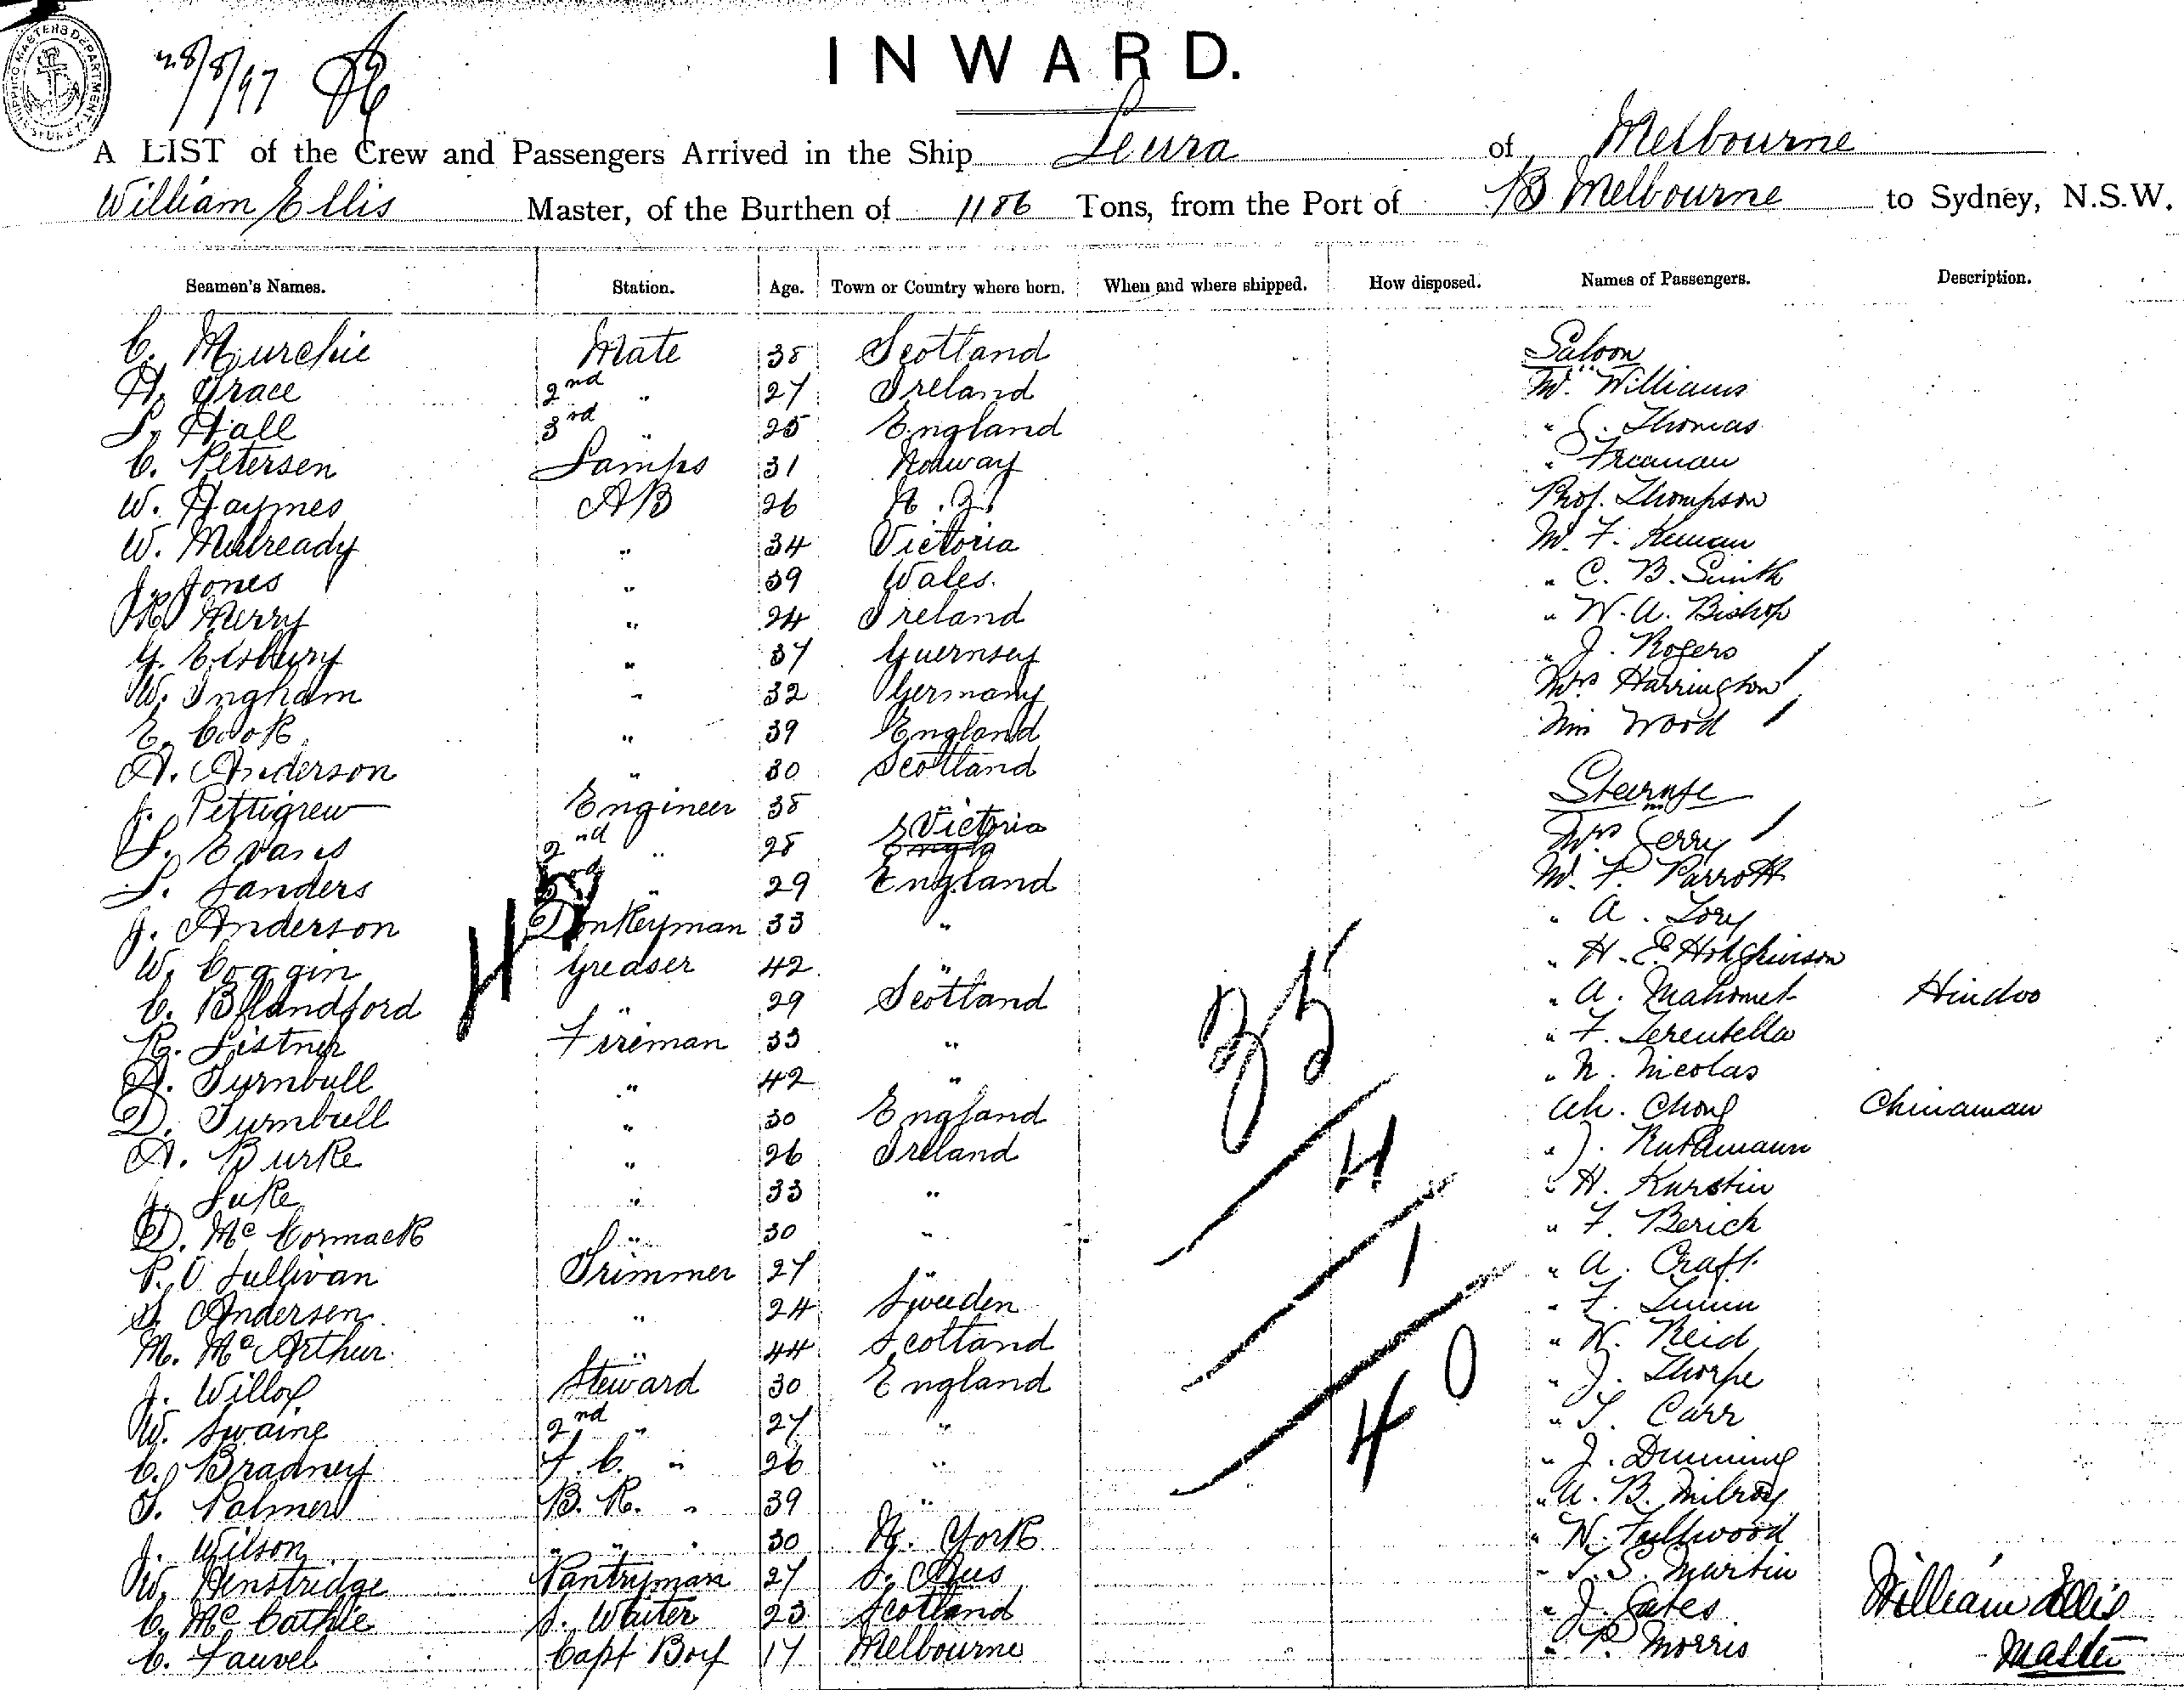 SHIPPING MASTERS DEPARTMENT
28/8/97
INWARD.
A LIST of the Crew and Passengers Arrived in the Ship Leura of Melbourne
William Ellis Master, of the Burthen of 1186 Tons, from the Port of Melbourne to Sydney, N.S.W.
Seamen's Names. Station. Age. Town or Country where born. When and where shipped. How disposed. Names of Passengers. Description.
C. Murchie Mate 38 Scotland Saloon
H. Grace 2nd " 27 Ireland Mr. Williams
S. Hall 3rd " 25 England " S. Thomas
C. Petersen Lamps 31 Norway " Freeman
W. Haymes AB 26 N.Z. Prof. Thompson
W. Mulready " 34 Victoria Mr. F.
J. Jones " 39 Wales. " C. B. Smith
R. Merry " 24 Ireland " W. A. Bishop
G. Elsbury " 37 Guernsey " J. Rogers
W. Ingham " 32 Germany Mrs Harrington
E. Cook " 39 England Miss Wood
A. Anderson " 30 Scotland
J. Pettigrew Engineer 38 " Steerage
S. Evans 2nd " 28 Victoria Mrs Gerry
S. Sanders 3rd " 29 England Mr. F. Parrott
J. Anderson Donkeyman 33 " " A. Lory
W. Coggin Greaser 42 " " H. E. Hotchkinson
C. Blandford " 29 Scotland " A. Mahomet Hindoo
R. Listner Fireman 33 " " F. Terentella
A. Turnbull " 42 " " N. Nicolas
D. Turnbull " 30 England Ah. Chong Chinaman
A. Burke " 26 Ireland " J.
J. Luke " 33 " " H. Kurstin
D. McCormack " 30 " " F. Berich
P. O'Sullivan Trimmer 27 " " A. Craft
S. Andersen " 24 Sweden " F.
M. McArthur " 44 Scotland " W. Reid
J. Willox Steward 30 England " J. Thorpe
W. Swaine 2nd " 27 " " T. Carr
C. Bradney F. C. " 26 " " J. Dunning
S. Palmer B. R. " 39 " " A. B. Milroy
J. Wilson " " " 30 N. York " W. Fullwood
W. Henstridge Pantryman 27 S. Aus " T. S. Martin
C. McCathie S. Waiter 23 Scotland " J. Gates William Ellis
C. Fauvel Capt Boy 17 Melbourne " P. Morris Master
4
35
4
1
40